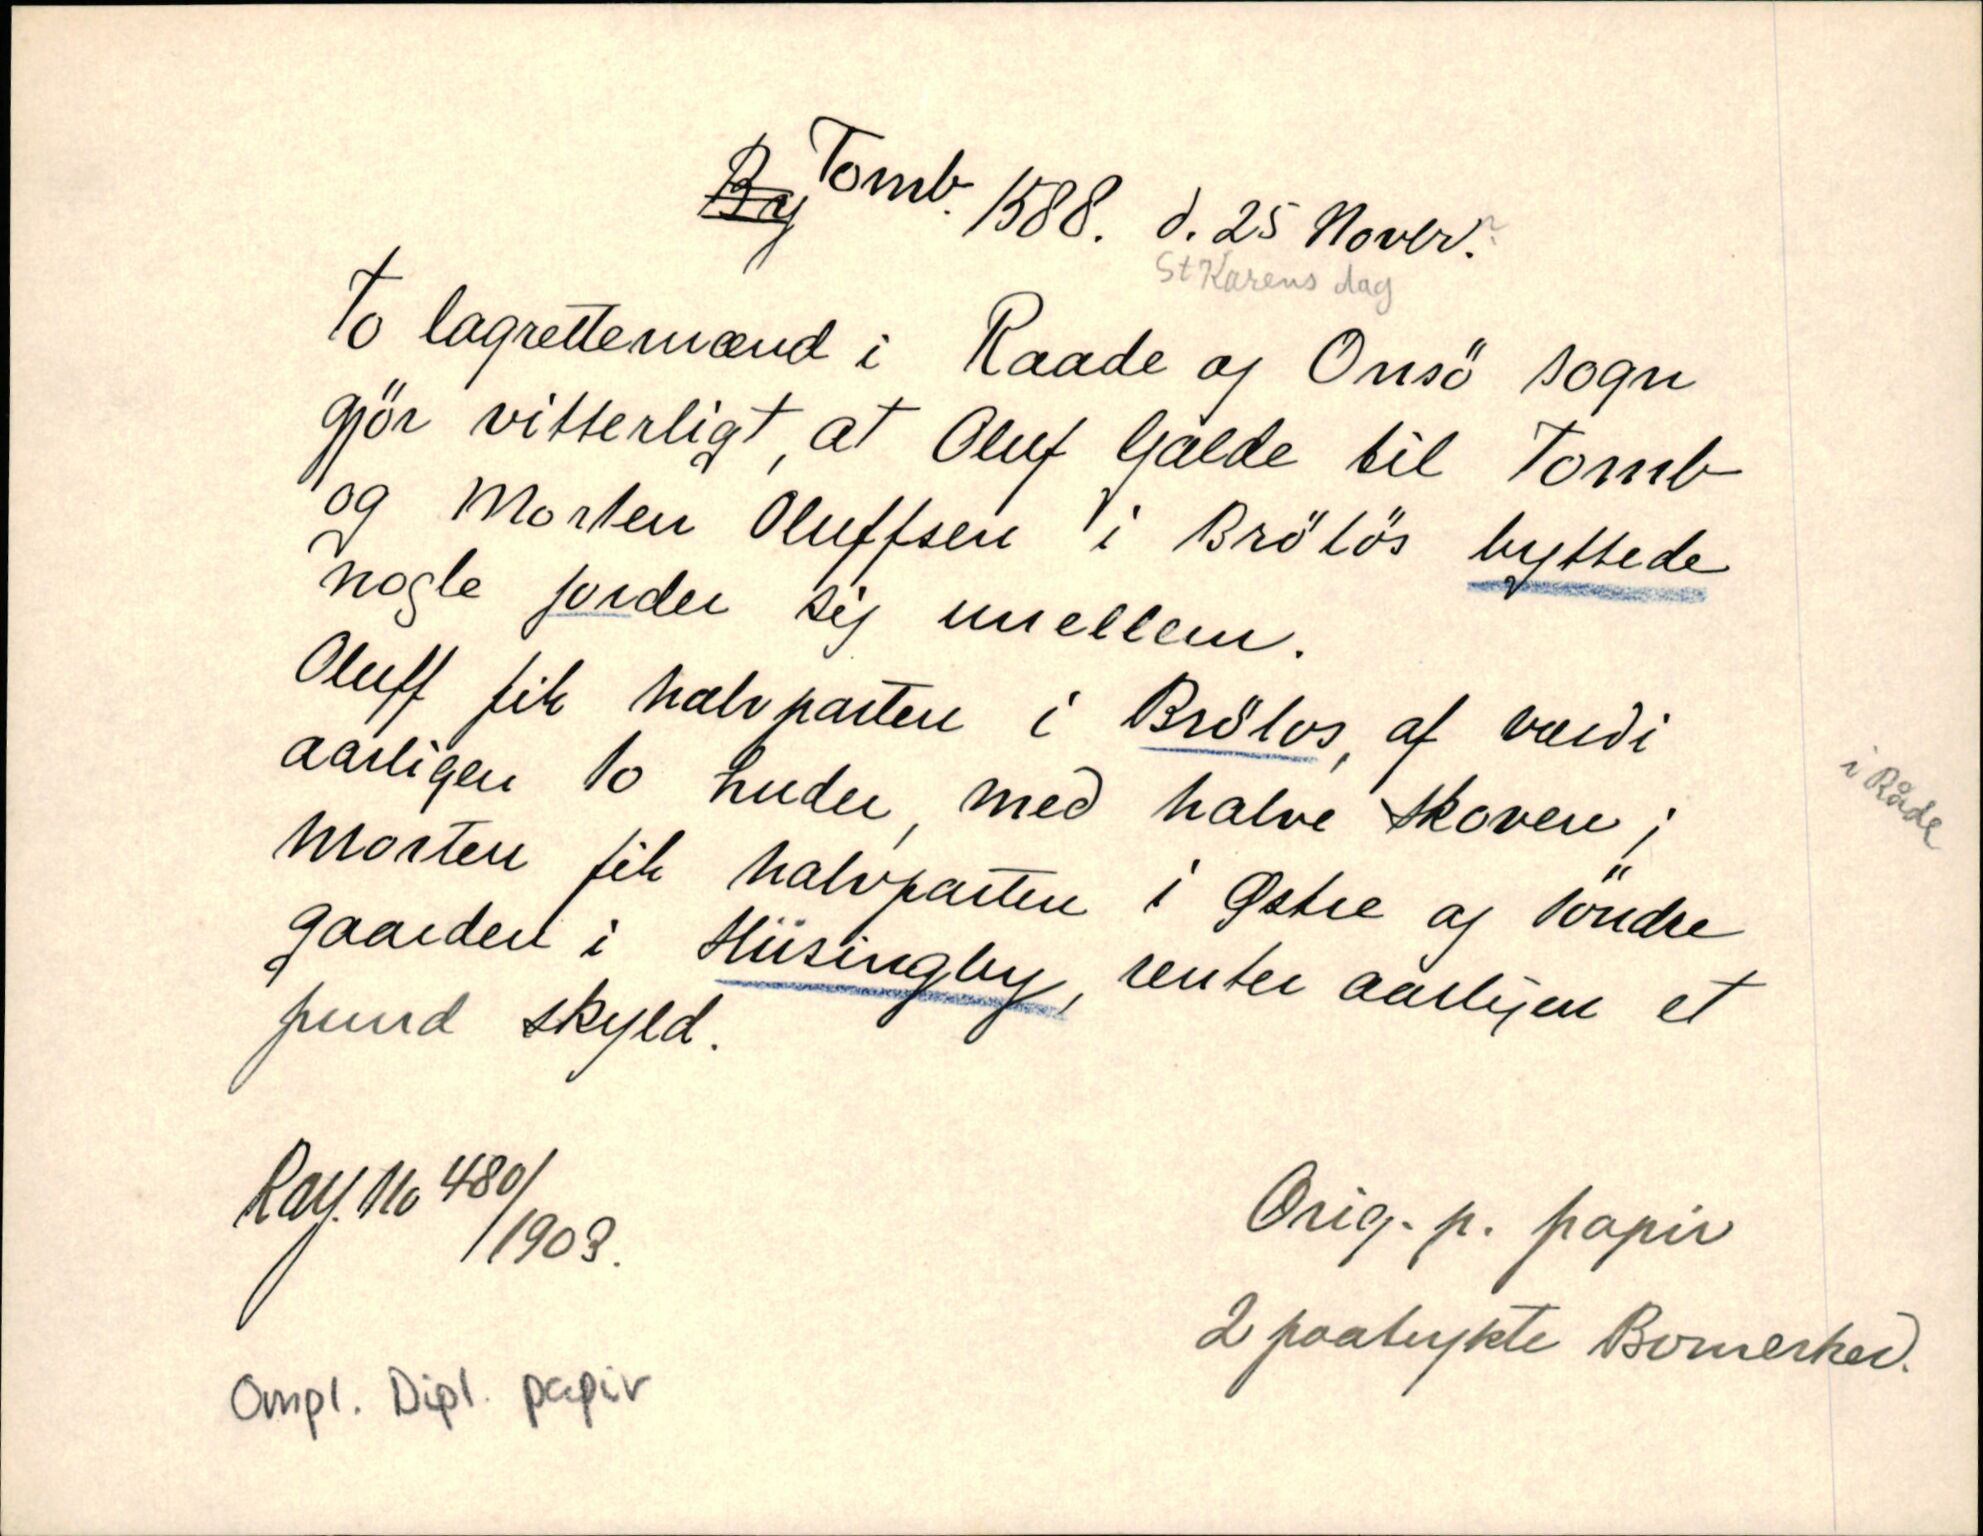 By Tomb. 1588. d. 25 Novbr.?
St Karens dag
To lagrettemænd i Raade og Onsö sogn
gjör vitterligt, at Oluf Galde til Tomb
og Morten Oluffsen i Brölös byttede
nogle jorder sig imellem.
Oluff fik halvparten i Brölos, af værdi
aarligen to huder, med halve skoven;
i Råde
Morten fik halvparten i Østre og Söndre
gaarden i Hüsingby, renter aarligen et
pund skyld.
Ray. No 480/1903.
Orig. p. papir
2 paatrykte Bomerker.
Ompl. Dipl. papir